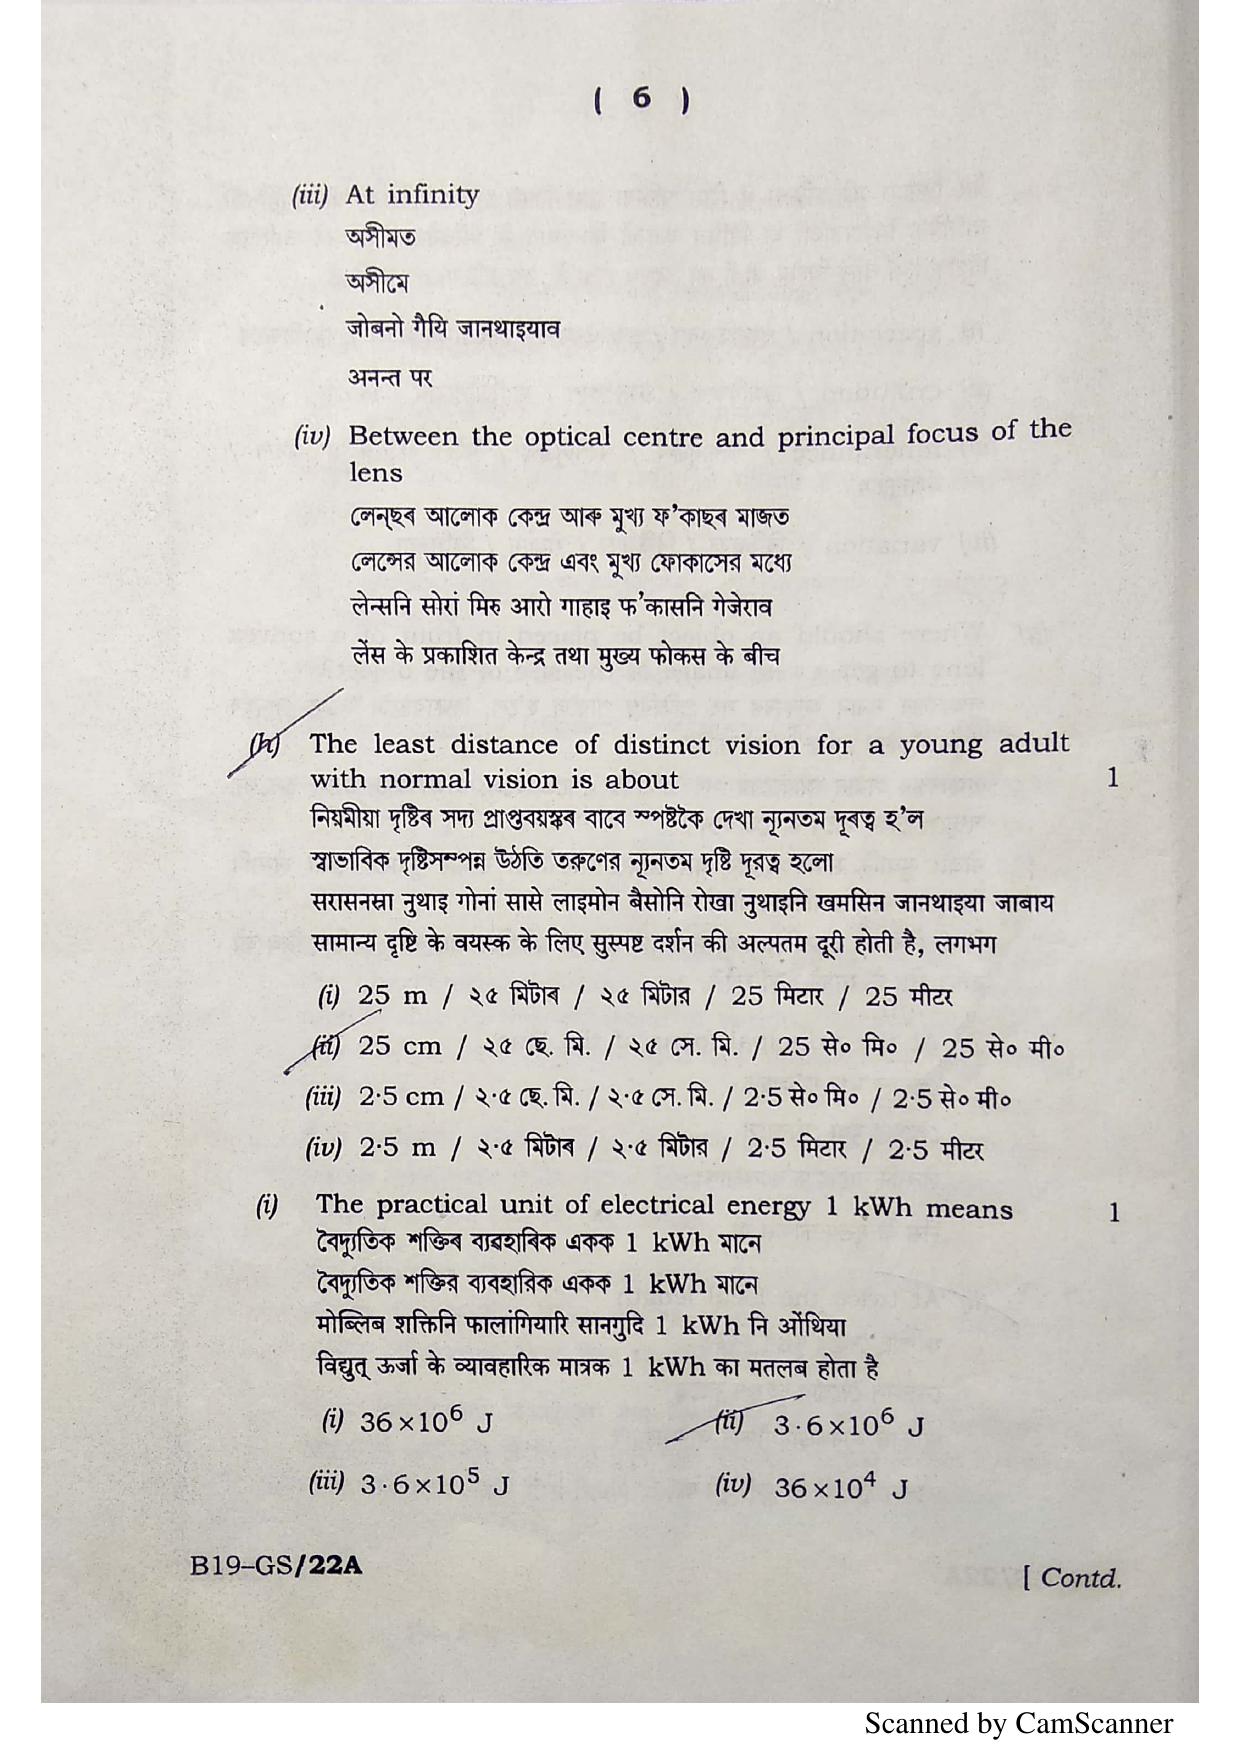 ( 6 )
(iii) At infinity
অসীমত
অসীমে
जोबनो गैयि जानथाइयाव
अनन्त पर
(iv) Between the optical centre and principal focus of the
lens
লেন্‌ছৰ আলোক কেন্দ্ৰ আৰু মুখ্য ফ'কাছৰ মাজত
লেন্সের আলোক কেন্দ্র এবং মুখ্য ফোকাসের মধ্যে
लेन्सनि सोरां मिरु आरो गाहाइ फ'कासनि गेजेराव
लेंस के प्रकाशित केन्द्र तथा मुख्य फोकस के बीच
(h) The least distance of distinct vision for a young adult
with normal vision is about 1
নিয়মীয়া দৃষ্টিৰ সদ্য প্ৰাপ্তবয়স্কৰ বাবে স্পষ্টকৈ দেখা ন্যূনতম দূৰত্ব হ'ল
স্বাভাবিক দৃষ্টিসম্পন্ন উঠতি তরুণের ন্যূনতম দৃষ্টি দূরত্ব হলো
सरासनस्रा नुथाइ गोनां सासे लाइमोन बैसोनि रोखा नुथाइनि खमसिन जानथाइया जाबाय
सामान्य दृष्टि के वयस्क के लिए सुस्पष्ट दर्शन की अल्पतम दूरी होती है, लगभग
(i) 25 m / ২৫ মিটাৰ / ২৫ মিটার / 25 मिटार / 25 मीटर
(ii) 25 cm / ২৫ ছে. মি. / ২৫ সে. মি. / 25 से० मि० / 25 से० मी०
(iii) 2·5 cm / ২·৫ ছে. মি. / ২·৫ সে. মি. / 2·5 से० मि० / 2·5 से० मी०
(iv) 2·5 m / ২·৫ মিটাৰ / ২·৫ মিটার / 2·5 मिटार / 2·5 मीटर
(i) The practical unit of electrical energy 1 kWh means 1
বৈদ্যুতিক শক্তিৰ ব্যৱহাৰিক একক 1 kWh মানে
বৈদ্যুতিক শক্তির ব্যবহারিক একক 1 kWh মানে
मोब्लिब शक्तिनि फालांगियारि सानगुदि 1 kWh नि ओंथिया
विद्युत् ऊर्जा के व्यावहारिक मात्रक 1 kWh का मतलब होता है
(i) 36×10⁶ J (ii) 3·6×10⁶ J
(iii) 3·6×10⁵ J (iv) 36×10⁴ J
B19–GS/22A [ Contd.
Scanned by CamScanner